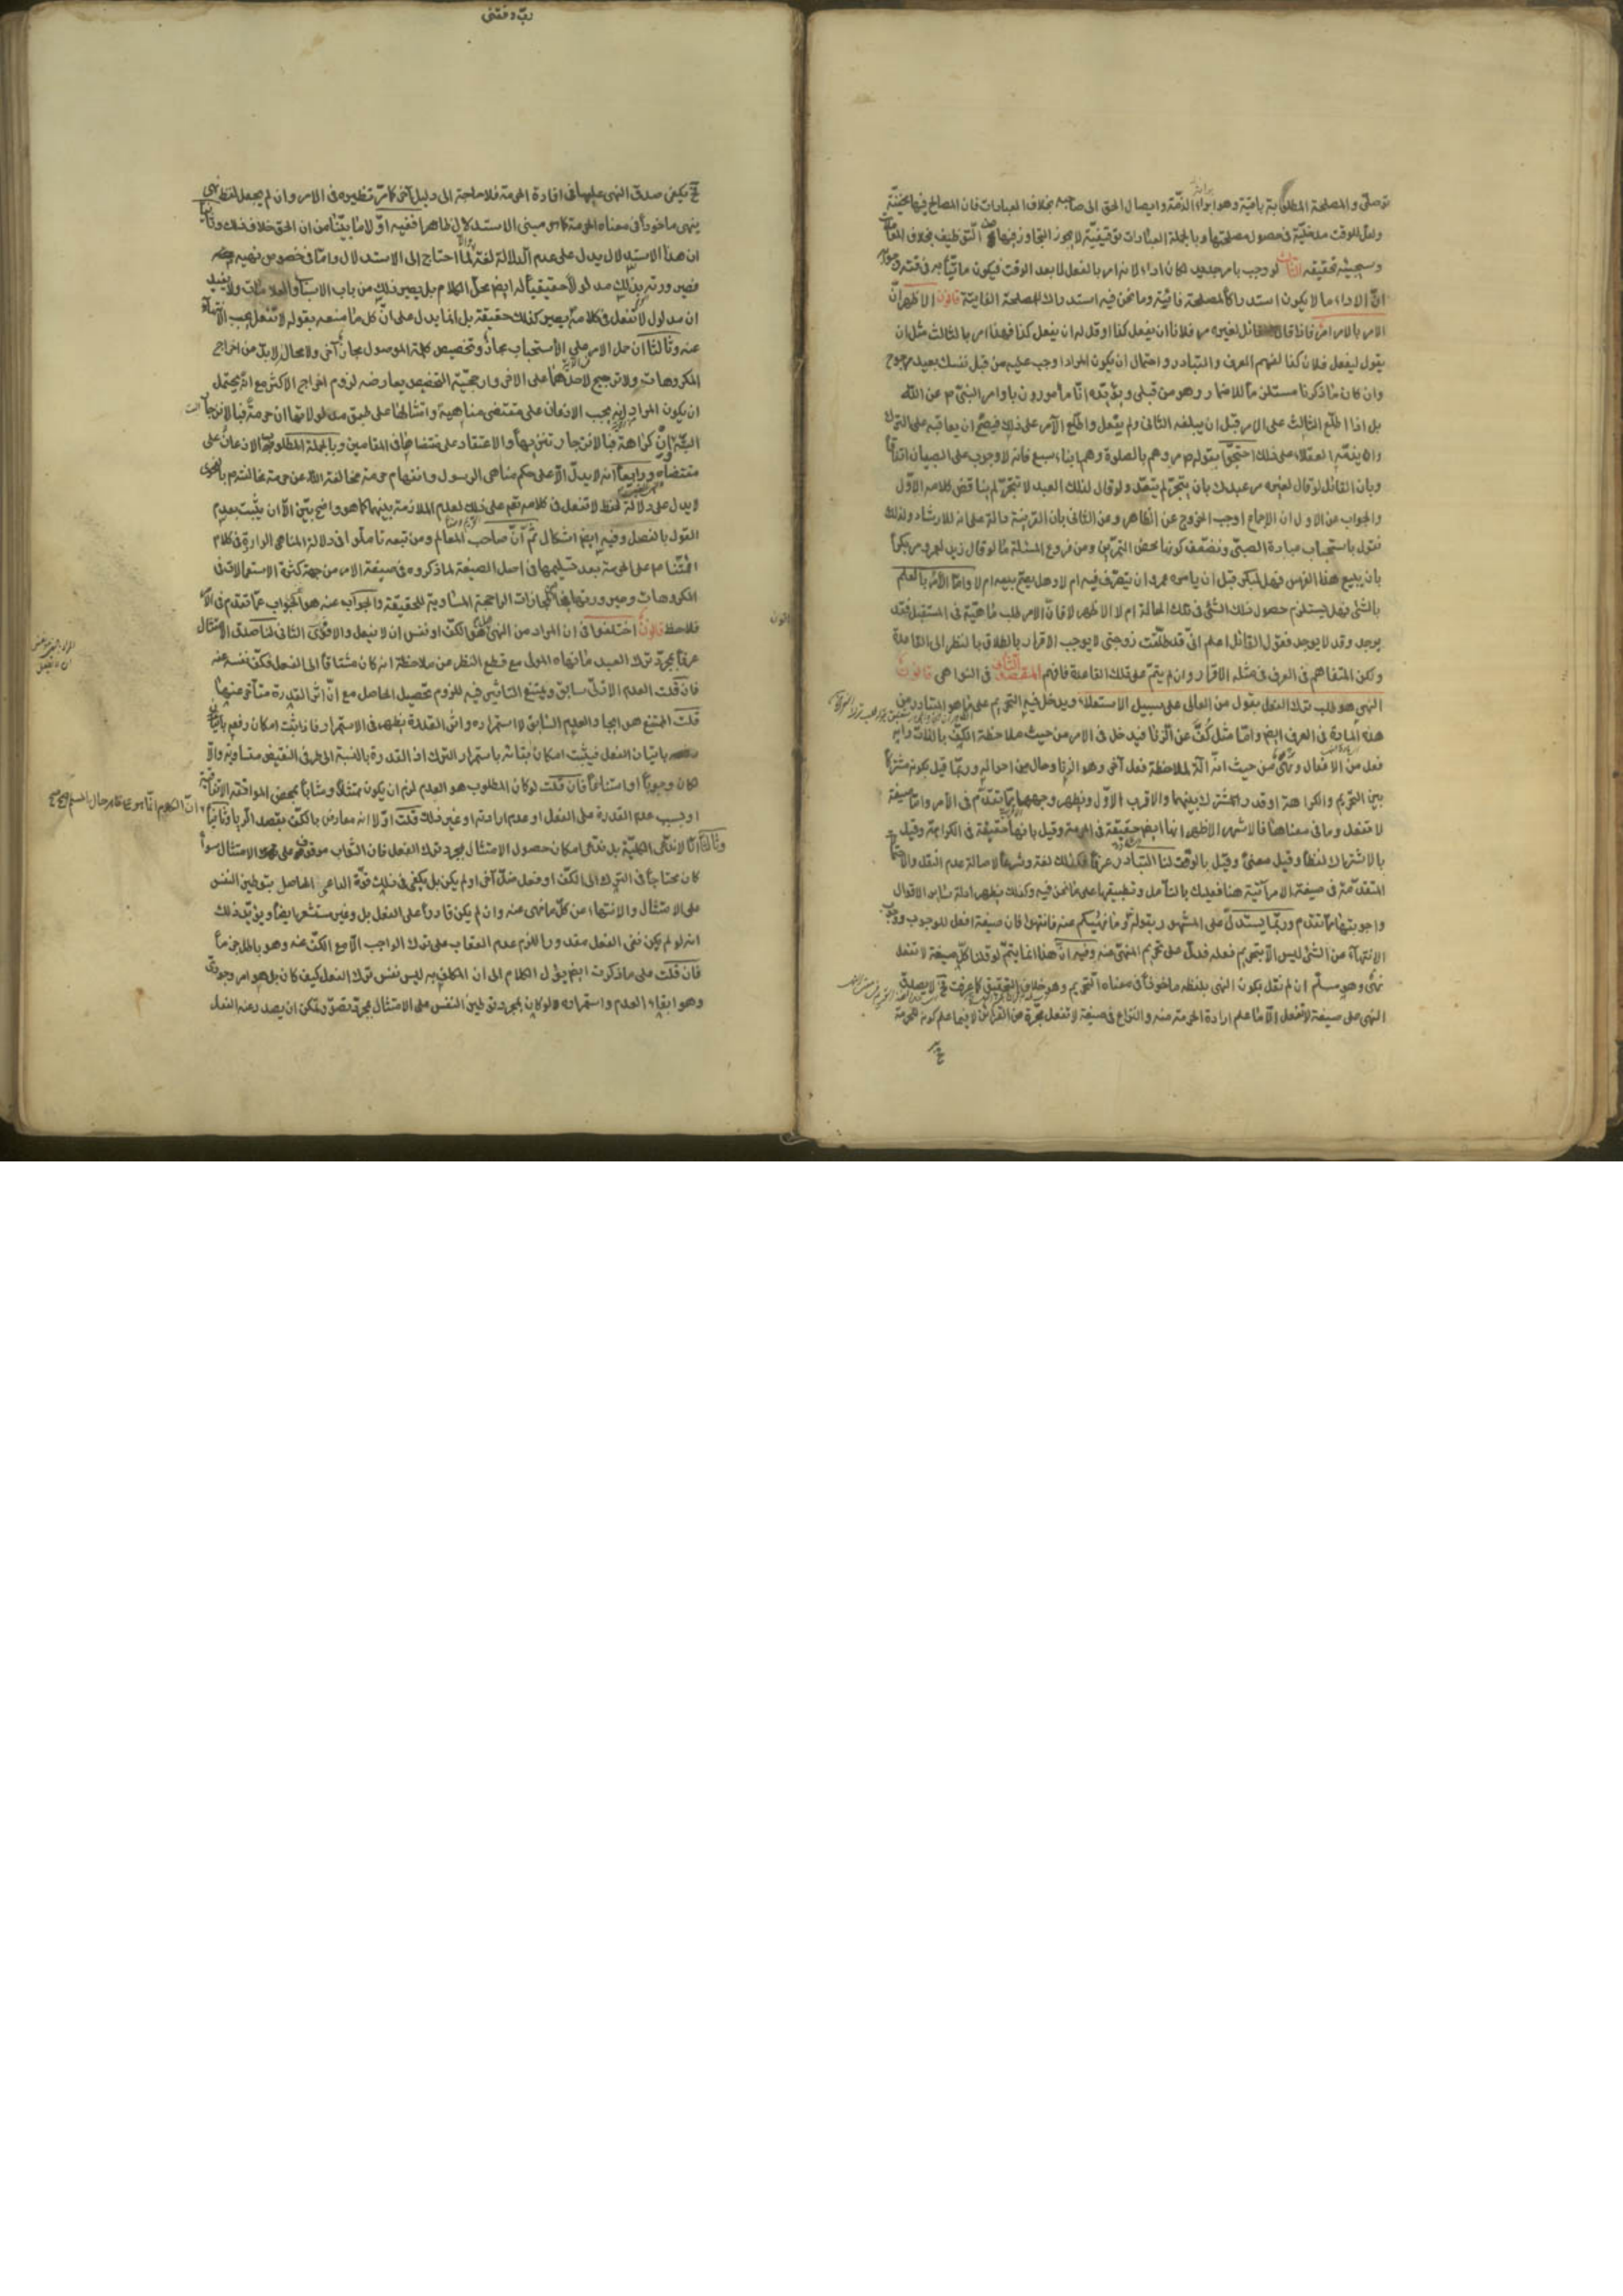 توصلى والمصلحة المطلوبة باقية وهو ابراء الذمة وايصال الحق الى صاحبه بخلاف العبادات فان المصالح فيها خفية
ولعل للوقت مدخلية فى حصول مصلحتها وبالجملة العبادات توقيفية لا يجوز التجاوز فيها عن التوظيف بخلاف المعاملات
وسيجيئ تحقيقه الثالث لو وجب بامر جديد لكان اداء لانه امر بالفعل لا بعد الوقت فيكون ماتيا به فى وقته وجوابه
ان الاداء ما لا يكون استدراكا لمصلحة فائتة وما نحن فيه استدراك للمصلحة الفايتة قانون الاظهر ان
الامر بالامر امر فاذا قال القائل لغيره مر فلانا ان يفعل كذا او قل له ان يفعل كذا فهذا امر بالثالث مثل ان
يقول ليفعل فلان كذا لفهم العرف والتبادر واحتمال ان يكون المراد اوجب عليه من قبل نفسك بعيد مرجوح
وان كان ما ذكرنا مستلزما للاضمار وهو من قبلى ويؤيده انا مأمورون باوامر النبى ص عن الله
بل اذا اطلع الثالث على الامر قبل ان يبلغه الثانى ولم يفعل واطلع الآمر على ذلك فيصح ان يعاقبه على الترك
وان يذمه العقلاء على ذلك احتجوا بقوله ص مروهم بالصلوة وهم ابناء سبع فانه لا وجوب على الصبيان اتفاقا
وبان القائل لو قال لغيره مر عبدك بان يتجر لم يتعد ولو قال لذلك العبد لا تتجر لم يناقض كلامه الاول
والجواب عن الاول ان الاجماع اوجب الخروج عن الظاهر وعن الثانى بان القرينة دالة على انه للارشاد ولذلك
نقول باستحباب عبادة الصبى ونضعف كونها محض التمرين ومن فروع المسئلة ما لو قال زيد لعمرو مر بكرا
بان يبيع هذا الفرس فهل لبكر قبل ان يامره عمرو ان يتصرف فيه ام لا وهل يصح بيعه ام لا واما الامر بالعلم
بالشئ فهل يستلزم حصول ذلك الشئ فى تلك الحالة ام لا الاظهر لا فان الامر طلب ماهية فى المستقبل فقد
يوجد وقد لا يوجد فقول القائل اعلم انى قد طلقت زوجتى لا يوجب الاقرار بالطلاق بالنظر الى القاعدة
ولكن المتفاهم فى العرف فى مثله الاقرار وان لم يتم على تلك القاعدة فافهم المقصد الثانى فى النواهى قانون
النهى هو طلب ترك الفعل بقول من العالى على سبيل الاستعلاء ويدخل فيه التحريم على ما هو المتبادر من
هذه المادة فى العرف ايض واما مثل كف عن الزنا فيدخل فى الامر من حيث ملاحظة الكف بالذات وانه
فعل من الافعال ونهى من حيث انه آلة لملاحظة فعل آخر وهو الزنا وحال من احواله وربما قيل بكونه مشتركا
بين التحريم والكراهة او قدر المشترك بينهما والاقرب الاول ويظهر وجهه مما تقدم فى الامر واما صيغة
لا تفعل وما فى معناها فالاشهر الاظهر انها ايض حقيقة فى الحرمة وقيل بانها حقيقة فى الكراهة وقيل
بالاشتراك لفظا وقيل معنى وقيل بالوقف لنا التبادر عرفا فكذلك لغة وشرعا لاصالة عدم النقل والاحتجاجات
المتقدمة فى صيغة الامر آتية هنا فعليك بالتأمل وتطبيقها على ما نحن فيه وكذلك يظهر ادلة سائر الاقوال
واجوبتها مما تقدم وربما يستدل على المشهور بقوله تع وما نهيكم عنه فانتهوا فان صيغة افعل للوجوب ووجوب
الانتهاء عن الشئ ليس الا تحريم فعله فدل على تحريم المنهى عنه وفيه ان هذا انما يتم لو قلنا كل صيغة لا تفعل
نهى وهو مسلم ان لم نقل بكون النهى بلفظه ماخوذا فى معناه التحريم وهو خلاف التحقيق كما عرفت فح لا يصدق
النهى على صيغة لا تفعل الا ما علم ارادة الحرمة منه والنزاع فى صيغة لا تفعل مجردة عن القرائن لا فيما علم كونه للحرمة
رب وفقنى
ح يكفى صدق النهى عليها فى افادة الحرمة فلا حاجة الى دليل آخر كما مر نظيره فى الامر وان لم يجعل لفظ نهى
ينهى ماخوذا فى معناه الحرمة كما هو مبنى الاستدلال ظاهرا ففيه اولا ما بيّنا من ان الحق خلاف ذلك وثانيا
ان هذا الاستدلال يدل على عدم الدلالة لغة والا لما احتاج الى الاستدلال واما فى خصوص نهيه ص
فصيرورته بذلك مدلولا حقيقيا له ايض محل الكلام بل يصير ذلك من باب الاسباب والعلامات ولا يفيد
ان مدلول لا تفعل فى كلامه ص يصير كذلك حقيقة بل انما يدل على ان كل ما منعه بقوله لا تفعل يجب الانتهاء
عنه وثالثا ان حمل الامر على الاستحباب مجاز وتخصيص كلمة الموصول مجاز آخر ولا محال لا بد من اخراج
المكروهات ولا ترجيح لاحدهما على الآخر وارجحية التخصيص يعارضه لزوم اخراج الاكثر مع انه يحتمل
ان يكون المراد انه يجب الاذعان على مقتضى مناهيه وامتثالها على طبق مدلولاتها ان حرمة فبالانزجار
البتة وان كراهة فبالانزجار تنزيها والاعتقاد على مقتضاهما فى المقامين وبالجملة المطلوب الاذعان على
مقتضاه ورابعا انه لا يدل الا على حكم مناهى الرسول وانفهام حرمة مخالفة الله عن حرمة مخالفته ص بالفحوى
لا يدل على دلالة لفظ لا تفعل فى كلامه تع على ذلك لعدم الملازمة بينهما كما هو واضح بيّن الا ان يثبت بعدم
القول بالفصل وفيه ايض اشكال ثم ان صاحب المعالم ومن تبعه تاملوا فى دلالة المناهى الواردة فى كلام
ائمتنا ع على الحرمة بعد تسليمها فى اصل الصيغة لما ذكروه فى صيغة الامر من جهة كثرة الاستعمالات فى
المكروهات وصيرورتها من المجازات الراجحة المساوية للحقيقة والجواب عنه هو الجواب عما تقدم فى الامر
فلاحظ قانون اختلفوا فى ان المراد من النهى هو الكف او نفس ان لا يفعل والاقوى الثانى لنا صدق الامتثال
عرفا بمجرد ترك العبد ما نهاه المولى مع قطع النظر عن ملاحظة انه كان مشتاقا الى الفعل فكف نفسه عنه
فان قلت العدم الازلى سابق ويمتنع التاثير فيه للزوم تحصيل الحاصل مع ان اثر القدرة متأخر عنها
قلت الممتنع هو ايجاد العدم السابق لا استمراره واثر القدرة يظهر فى الاستمرار فاذا ثبت امكان رفعه باتيان
باتيان الفعل فيثبت امكان ابقائه باستمرار الترك اذ القدرة بالنسبة الى طرفى النقيض متساوية والا
لكان وجوبا او امتناعا فان قلت لو كان المطلوب هو العدم لزم ان يكون ممتثلا ومثابا بمحض الموافقة الاتفاقية
او بسبب عدم القدرة على الفعل او عدم ارادته او غير ذلك قلت اولا انه معارض بالكف بقصد الريا وثانيا
وثالثا انا لا ندعى الكلية بل ندعى امكان حصول الامتثال بمجرد ترك الفعل فان الثواب موقوف على الامتثال سواء
كان محتاجا فى الترك الى الكف او فعل ضد آخر او لم يكن بل يكفى فى ذلك قوة الداعى الحاصل بتوطين النفس
على الامتثال والانتهاء عن كل ما نهى عنه وان لم يكن قادرا على الفعل بل وغير مستشعر ايضا ويؤيد ذلك
انه لو لم يكن نفى الفعل مقدورا للزم عدم العقاب على ترك الواجب الا مع الكف عنه وهو باطل جزما
فان قلت على ما ذكرت ايض يؤل الكلام الى ان المكلف به ليس نفس ترك الفعل كيف كان بل هو امر وجودى
وهو ابقاء العدم واستمراره ولو كان بمجرد توطين النفس على الامتثال بمجرد تصور ولكن ان يصدر عنه الفعل